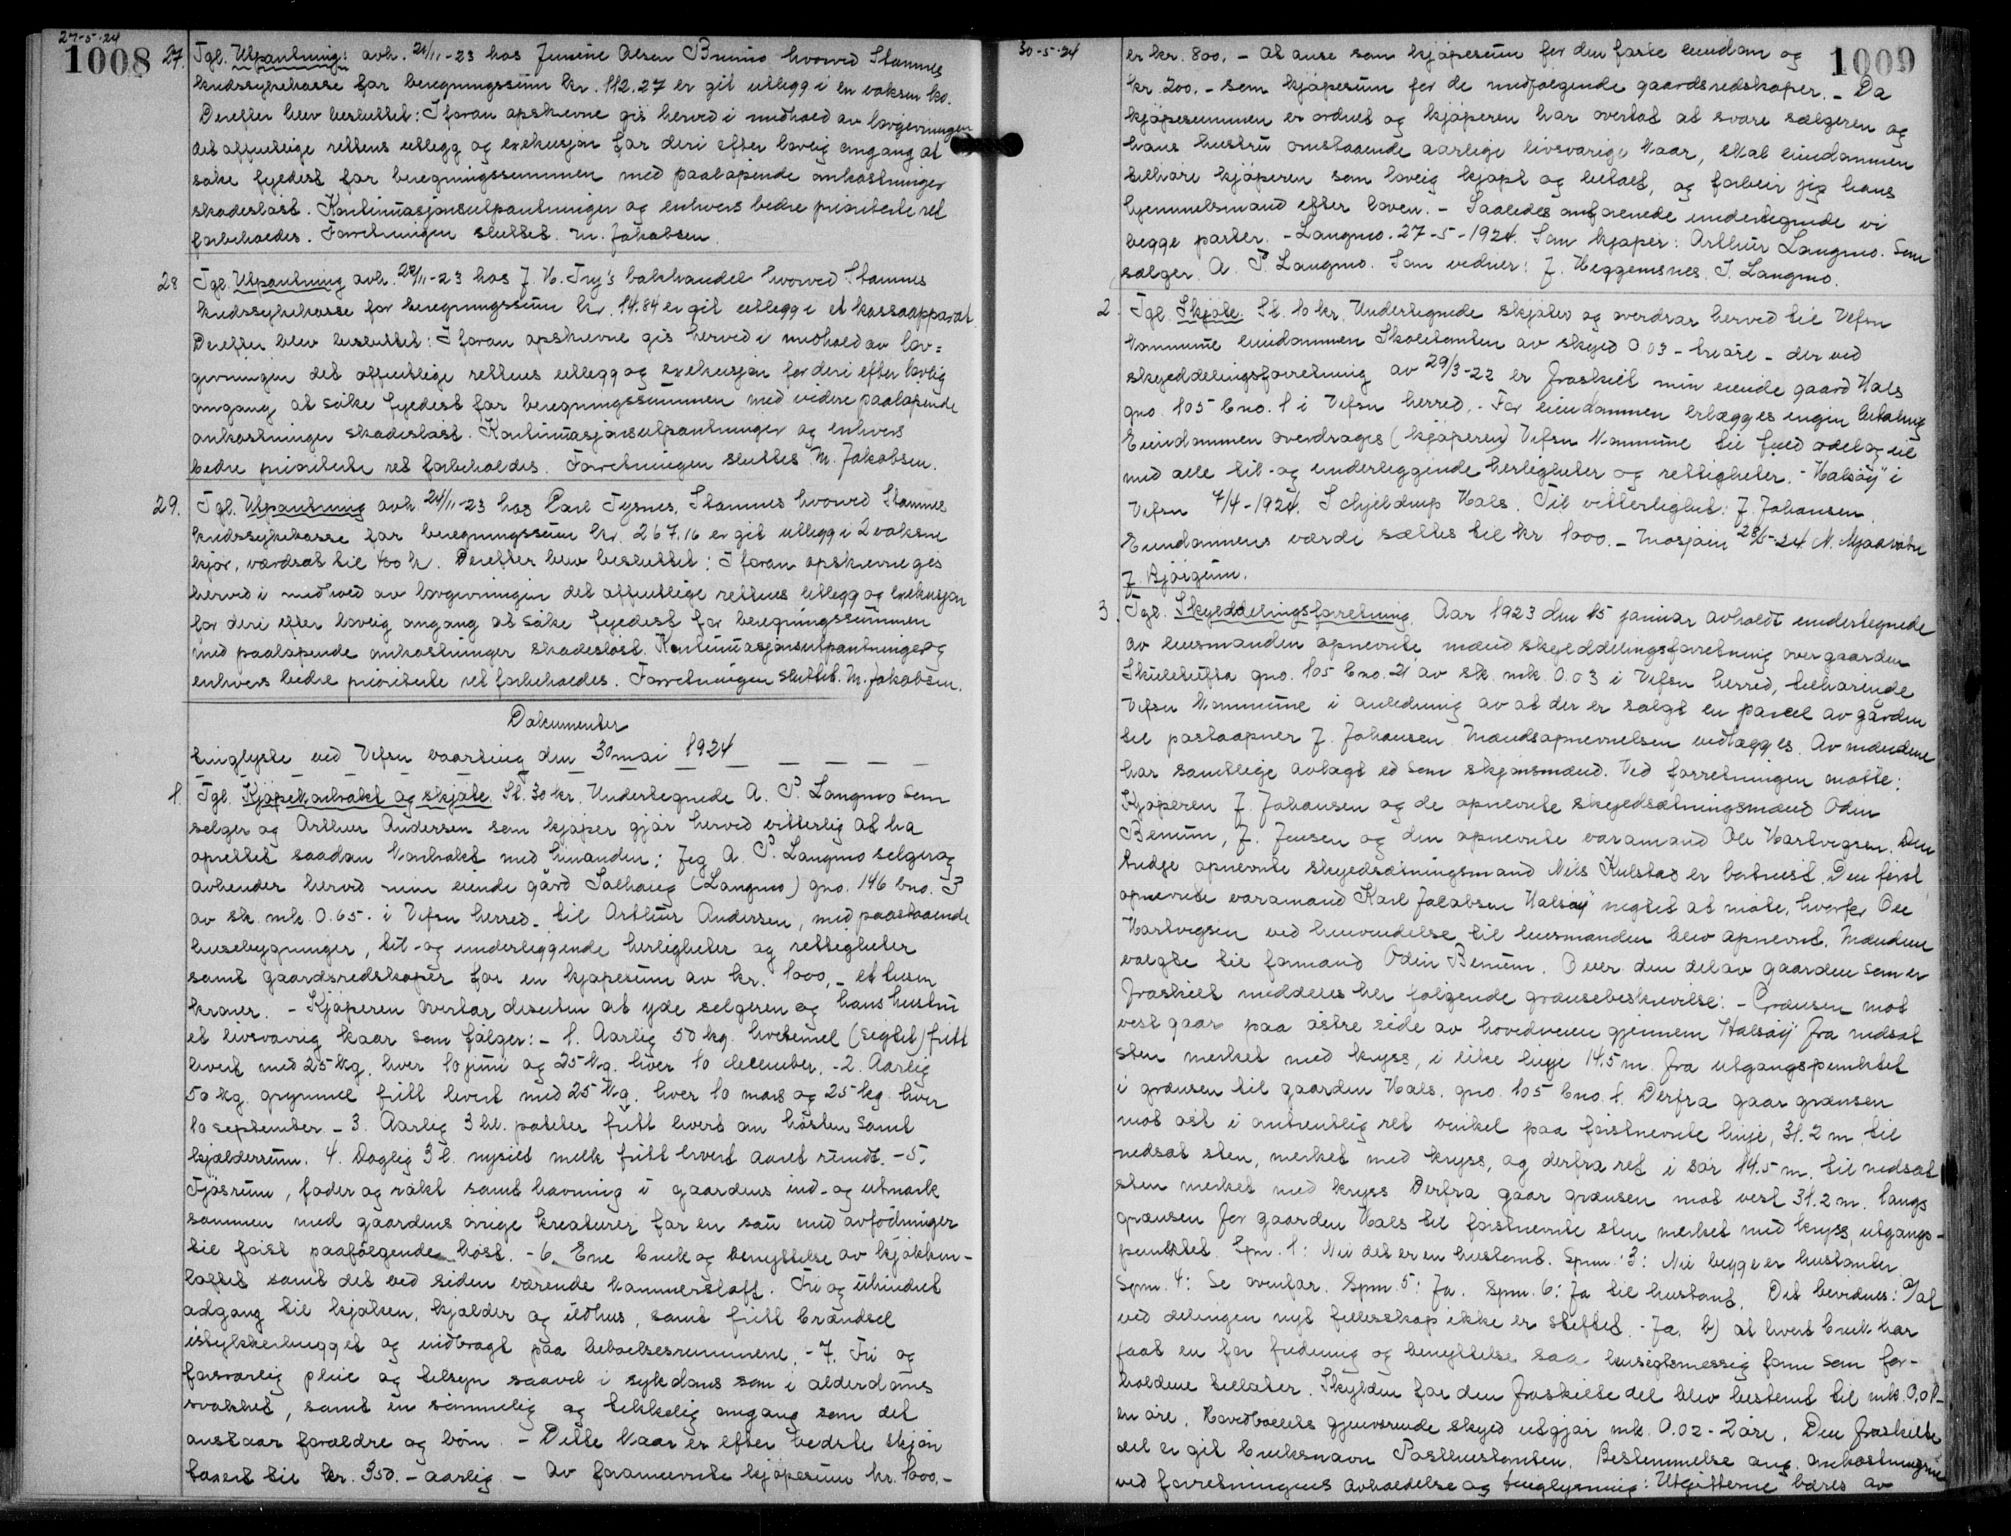 27-5-24
1008
27. Tgl. Utpantning: avh. 21/11-23 hos Junine Olsen Brunmo hvorved Stamnes
kredssykekasse for beregningssum kr. 112.27 er git utlegg i en voksen ko.
Derefter blev besluttet: I foran opskrevne gis herved i medhold av lovgivningen
det offentlige rettens utlegg og exekusjon for deri efter lovlig omgang at
søke fyldest for beregningssummen med paaløpende omkostninger
skadesløst. Kontinuasjonsutpantninger og enhvers bedre prioriterte ret
forbeholdes. Forretningen sluttet. M. Jakobsen.
28 Tgl. Utpantning avh. 22/11-23 hos J. H. Try's bokhandel hvorved Stamnes
kredssykekasse for beregningssum kr. 14.84 er git utlegg i et kassaapparat
Derefter blev besluttet: I foran opskrevne gis herved i medhold av lov=
givningen det offentlige rettens utlegg og exekusjon for deri efter lovlig
omgang at søke fyldest for beregningssummen med videre paaløpende
omkostninger skadesløst. Kontinuasjonsutpantninger og enhvers
bedre prioriterte ret forbeholdes. Forretningen sluttes M. Jakobsen.
29. Tgl. Utpantning avh. 24/11-23 hos Carl Tysnes, Stamnes hvorved Stamnes
kredssykekasse for beregningssum kr. 267.16 er git utlegg i 2 voksne
kjør, værdsat til 400 kr. Derefter blev besluttet: I foran opskrevne gis
herved i medhold av lovgivningen det offentlige rettens utlegg og exekusjon
for deri efter lovlig omgang at søke fyldest for beregningssummen
med paaløpende omkostninger skadesløst. Kontinuasjonsutpantninger og
enhvers bedre prioriterte ret forbeholdes. Forretningen sluttet. M. Jakobsen.
Dokumenter
tinglyste ved Vefsn vaarting den 30 mai 1924
1. Tgl. Kjøpekontrakt og skjøte. St. 30 kr. Undertegnede A. P. Langmo som
selger og Arthur Andersen som kjøper gjør herved vitterlig at ha
oprettet saadan kontrakt med hinanden: Jeg A. P. Langmo selger og
avhender herved min eiende gård Solhaug (Langmo) gno. 146 bno. 3
av sk. mk. 0.65. i Vefsn herred. til Arthur Andersen, med paastaaende
husebygninger, til- og underliggende herligheter og rettigheter
samt gaardsredskaper for en kjøpesum av kr. 1000,- et tusen
kroner. - Kjøperen overtar desuten at yde selgeren og hans hustru
et livsvarig kaar som følger:- 1. Aarlig 50 kg. hvetemel (sigtet) fritt
levert med 25 kg. hver 10 juni og 25 kg. hver 10 december. -2. Aarlig
50 kg. grynmel fritt levert med 25 kg. hver 10 mars og 25 kg. hver
10 september - 3. Aarlig 3 hl. poteter fritt levert om høsten samt
kjælderrum. 4. Daglig 3 l. nysilt melk fritt levert aaret rundt. -5.
Fjøsrum, foder og røkt samt havning i gaardens ind- og utmark
sammen med gaardens øvrige kreaturer for en sau med avfødninger
til først paafølgende høst. -6. Ene bruk og benyttelse av kjøkken-
loftet samt det ved siden værende kammersloft. Fri og uhindret
adgang til kjøkken, kjælder og ildhus, samt fritt brændsel
istykkerhugget og indbragt paa beboelsesrummene. - 7. Fri og
forsvarlig pleie og tilsyn saavel i sykdoms som i alderdoms
svakhet, samt en sømmelig og tekkelig omgang som det
anstaar forældre og børn. - Dette kaar er efter bedste skjøn
taxert til kr. 350.- aarlig. - Av forannevnte kjøpesum kr. 1000.-
30-5-24
1009
er kr. 800.- at anse som kjøpesum for den faste eiendom og
kr. 200.- som kjøpesum for de medfølgende gaardsredskaper. - Da
kjøpesummen er ordnet og kjøperen har overtat at svare sælgeren og
hans hustru omstaaende aarlige livsvarige kaar, skal eiendommen
tilhøre kjøperen som lovlig kjøpt og betalt, og forblir jeg hans
hjemmelsmand efter loven. - Saaledes omforenede undertegnede vi
begge parter. - Langmo. 27-5-1924. Som kjøper: Arthur Langmo. Som
sælger A. P. Langmo. Som vidner: J. Heggemsnes. I. Langmo.
2. Tgl. Skjøte. St. 10 kr. Undertegnede skjøter og overdrar herved til Vefsn
kommune eiendommen Skoletomten av skyld 0.03 - tre øre - der ved
skylddelingsforretning av 29/3-22 er fraskilt min eiende gaard Hals
gno. 105 bno. 1 i Vefsn herred. - For eiendommen erlægges ingen betaling
Eiendommen overdrages (kjøperen) Vefsn kommune til fuld odel og eie
med alle til- og underliggende herligheter og rettigheter. - "Halsøy" i
Vefsn 7/4-1924. Schjeldrup Hals. Til vitterlighet: J. Johansen.
Eiendommens værdi sættes til kr 1000.- Mosjøen 28/5-24. N. Mjaavatn
J. Bjørgum.
3. Tgl. Skylddelingsforretning. Aar 1923 den 15 januar avholdt undertegnede
av lensmanden opnevnte mænd skylddelingsforretning over gaarden
Skuletufta gno. 105 bno. 21 av sk. mk. 0.03 i Vefsn herred, tilhørende
Vefsn kommune i anledning av at der er solgt en parcel av gården
til postaapner J. Johansen. Mændsopnevnelsen vedlægges. Av mændene
har samtlige avlagt ed som skjønsmænd. Ved forretningen møtte:
Kjøperen J. Johansen og de opnevnte skyldsætningsmænd Odin
Benum, J. Jensen og den opnevnte varamand Ole Hartvigsen. Den
tredje opnevnte skyldsætningsmand Nils Kulstad er bortreist. Den først
opnevnte varamand Karl Jakobsen Halsøy negtet at møte, hvorfor Ole
Hartvigsen ved henvendelse til lensmanden blev opnevnt. Mændene
valgte til formand Odin Benum. Over den del av gaarden som er
fraskilt meddeles her følgende grænsebeskrivelse: - Grænsen mot
vest gaar paa østre side av hovedveien gjennem Halsøy fra nedsat
sten merket med kryss, i like linje 14.5 m. fra utgangspunktet
i grænsen til gaarden Hals. gno. 105 bno. 1. Derfra gaar grænsen
mot øst i omtrentlig ret vinkel paa førstnevnte linje, 31.2 m. til
nedsat sten, merket med kryss, og derfra ret i sør 14.5 m. til nedsat
sten merket med kryss Derfra gaar grænsen mot vest 31.2 m. langs
grænsen for gaarden Hals til førstnevnte sten merket med kryss, utgangs-
punktet. Spm. 1: Nei det er en hustomt. Spm. 3: Nei begge er hustomter
Spm. 4: Se ovenfor. Spm. 5: Ja. Spm. 6: Ja til hustomt. Det bevidnes: a) at
ved delingen nyt fellesskap ikke er stiftet. - Ja. b) at hvert bruk har
faat en for fredning og benyttelse saa hensigtsmessig form som for-
holdene tillater. Skylden for den fraskilte del blev bestemt til mk. 0.01-
en øre. Hovedbølets gjenværende skyld utgjør mk. 0.02 - 2 øre. Den fraskilte
del er git bruksnavn Posthustomten. Bestemmelse ang. omkostningene
ved forretningens avholdelse og tinglysning: Utgifterne bæres av